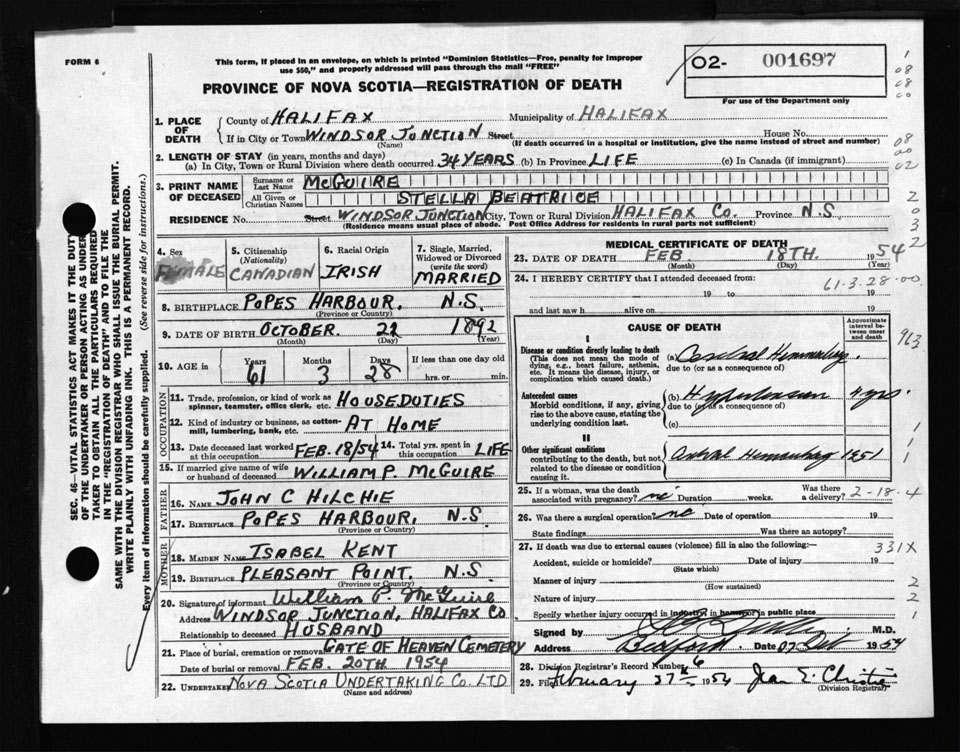 FORM 6
This form, if placed in an envelope, on which is printed "Dominion Statistics—Free, penalty for improper
use $50," and properly addressed will pass through the mail "FREE"
O2- 001697
For use of the Department only
PROVINCE OF NOVA SCOTIA—REGISTRATION OF DEATH
1. PLACE OF DEATH
County of HALIFAX Municipality of HALIFAX
If in City or Town WINDSOR JUNCTION Street House No.
(Name) (If death occurred in a hospital or institution, give the name instead of street and number)
2. LENGTH OF STAY (in years, months and days)
(a) In City, Town or Rural Division where death occurred 34 YEARS (b) In Province LIFE (c) In Canada (if immigrant)
3. PRINT NAME OF DECEASED
Surname or Last Name MCGUIRE
All Given or Christian Names STELLA BEATRICE
RESIDENCE No. Street WINDSOR JUNCTION City, Town or Rural Division HALIFAX CO. Province N.S.
(Residence means usual place of abode. Post Office Address for residents in rural parts not sufficient)
4. Sex FEMALE
5. Citizenship (Nationality) CANADIAN
6. Racial Origin IRISH
7. Single, Married, Widowed or Divorced (write the word) MARRIED
8. BIRTHPLACE POPES HARBOUR, N.S.
(Province or Country)
9. DATE OF BIRTH OCTOBER 21 1892
(Month) (Day) (Year)
10. AGE in Years 61 Months 3 Days 28 If less than one day old hrs. or min.
OCCUPATION
11. Trade, profession, or kind of work as spinner, teamster, office clerk, etc. HOUSEDUTIES
12. Kind of industry or business, as cotton-mill, lumbering, bank, etc. AT HOME
13. Date deceased last worked at this occupation FEB. 18/54 14. Total yrs. spent in this occupation LIFE
15. If married give name of wife or husband of deceased WILLIAM P. MCGUIRE
FATHER
16. NAME JOHN C HILCHIE
17. BIRTHPLACE POPES HARBOUR, N.S.
MOTHER
18. MAIDEN NAME ISABEL KENT
19. BIRTHPLACE PLEASANT POINT, N.S.
(Province or Country)
20. Signature of informant William P. McGuire
Address WINDSOR JUNCTION, HALIFAX CO
Relationship to deceased HUSBAND
21. Place of burial, cremation or removal GATE OF HEAVEN CEMETERY
Date of burial or removal FEB. 20TH 1954
22. UNDERTAKER NOVA SCOTIA UNDERTAKING CO. LTD
(Name and address)
MEDICAL CERTIFICATE OF DEATH
23. DATE OF DEATH FEB. 18TH. 1954
(Month) (Day) (Year)
24. I HEREBY CERTIFY that I attended deceased from:
61-3-28-00
19 to 19
and last saw h alive on 19
CAUSE OF DEATH
Approximate interval between onset and death
I
Disease or condition directly leading to death
(This does not mean the mode of dying, e.g., heart failure, asthenia, etc. It means the disease, injury, or complication which caused death.)
(a) Cerebral Hemorrhage
due to (or as a consequence of)
963
Antecedent causes
Morbid conditions, if any, giving rise to the above cause, stating the underlying condition last.
(b) Hypertension 4 yrs.
due to (or as a consequence of)
(c)
II
Other significant conditions
contributing to the death, but not related to the disease or condition causing it.
Cerebral Hemorrhage 1951
25. If a woman, was the death associated with pregnancy? no Duration weeks. Was there a delivery?
2-18-4
26. Was there a surgical operation? no Date of operation 19
State findings Was there an autopsy?
27. If death was due to external causes (violence) fill in also the following:—
331X
Accident, suicide or homicide? Date of injury 19
(State which)
Manner of injury
(How sustained)
Nature of injury
Specify whether injury occurred in industry, in home, or in public place
Signed by M.D.
Address Bedford Date 1954
28. Division Registrar's Record Number 6
29. Filed February 27th 1954 Jean E. Christie
(Division Registrar)
SEC. 46—VITAL STATISTICS ACT MAKES IT THE DUTY
OF THE UNDERTAKER OR PERSON ACTING AS UNDER-
TAKER TO OBTAIN ALL THE PARTICULARS REQUIRED
IN THE "REGISTRATION OF DEATH" AND TO FILE THE
SAME WITH THE DIVISION REGISTRAR WHO SHALL ISSUE THE BURIAL PERMIT.
WRITE PLAINLY WITH UNFADING INK. THIS IS A PERMANENT RECORD.
Every item of information should be carefully supplied. (See reverse side for instructions.)